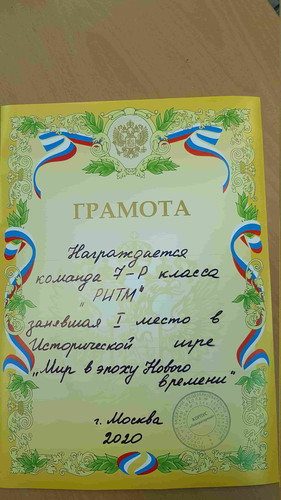 ГРАМОТА
Награждается
команда 7-Р класса
"РИТМ"
занявшая I место в
Исторической игре
„Мир в эпоху Нового
времени"
г. Москва
2020